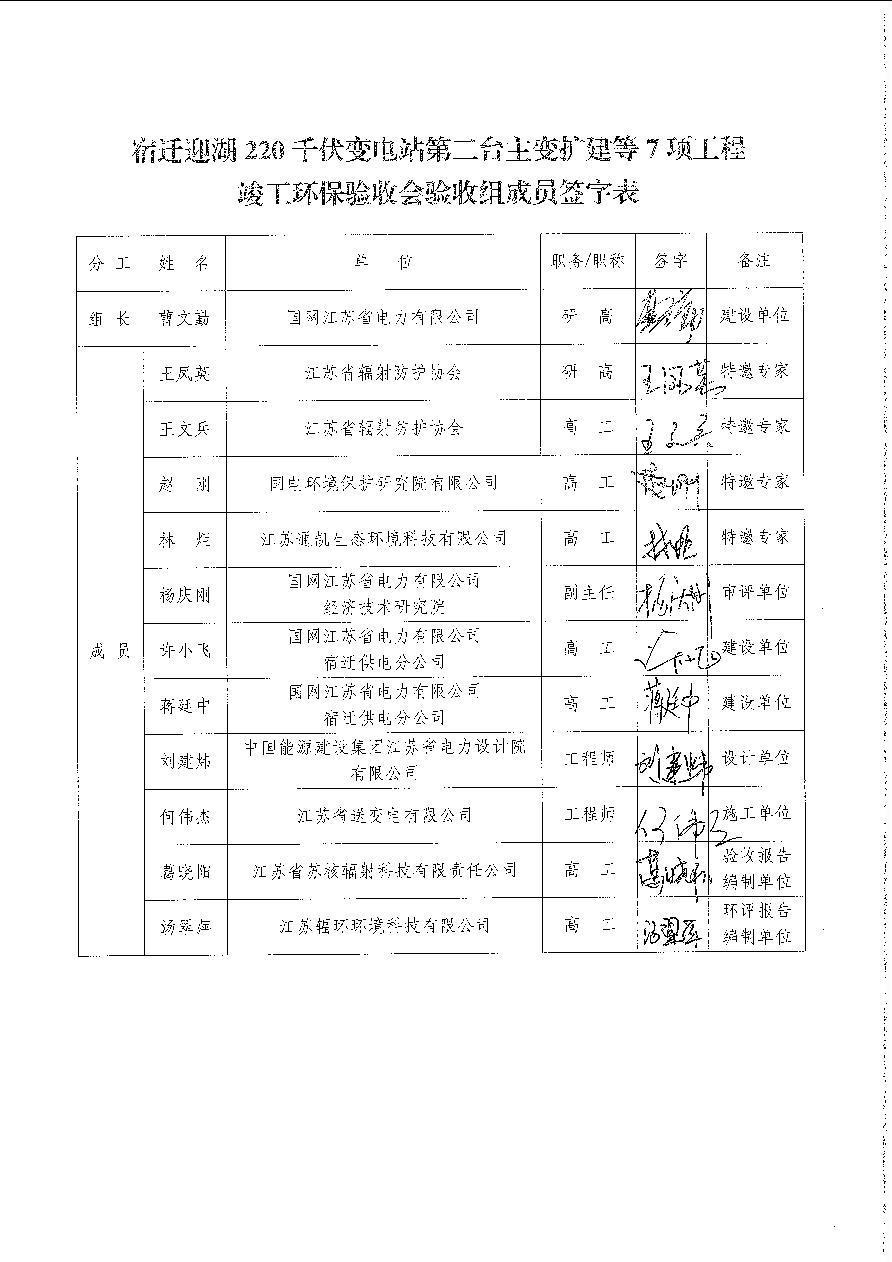 宿迁迎湖220千伏变电站第二台主变扩建等7项工程
竣工环保验收会验收组成员签字表
分工 姓名 单位 职务/职称 签字 备注
组长 曹文勤 国网江苏省电力有限公司 研高 建设单位
王凤英 江苏省辐射防护协会 研高 特邀专家
王文兵 江苏省辐射防护协会 高工 王文兵 特邀专家
赵刚 国电环境保护研究院有限公司 高工 特邀专家
林烂 江苏通凯生态环境科技有限公司 高工 特邀专家
杨庆刚 国网江苏省电力有限公司 副主任 杨庆刚 审评单位
经济技术研究院
成员 许小飞 国网江苏省电力有限公司 高工 建设单位
宿迁供电分公司
蒋廷中 国网江苏省电力有限公司 高工 蒋廷中 建设单位
宿迁供电分公司
刘建炜 中国能源建设集团江苏省电力设计院 工程师 刘建炜 设计单位
有限公司
何伟杰 江苏省送变电有限公司 工程师 何伟杰 施工单位
葛晓阳 江苏省苏核辐射科技有限责任公司 高工 葛晓阳 验收报告
编制单位
汤翠萍 江苏辐环环境科技有限公司 高工 环评报告
编制单位